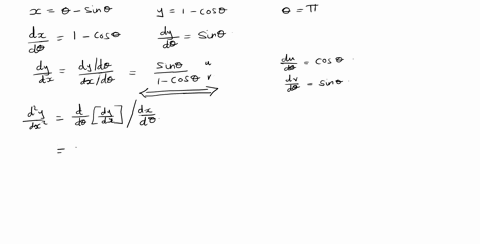 x = θ - sinθ    y = 1 - cosθ    θ = π
dx/dθ = 1 - cosθ    dy/dθ = sinθ
dy/dx = (dy/dθ)/(dx/dθ) = sinθ/(1 - cosθ) u v    du/dθ = cosθ
dv/dθ = sinθ
d²y/dx² = d/dθ [dy/dx] / dx/dθ
=